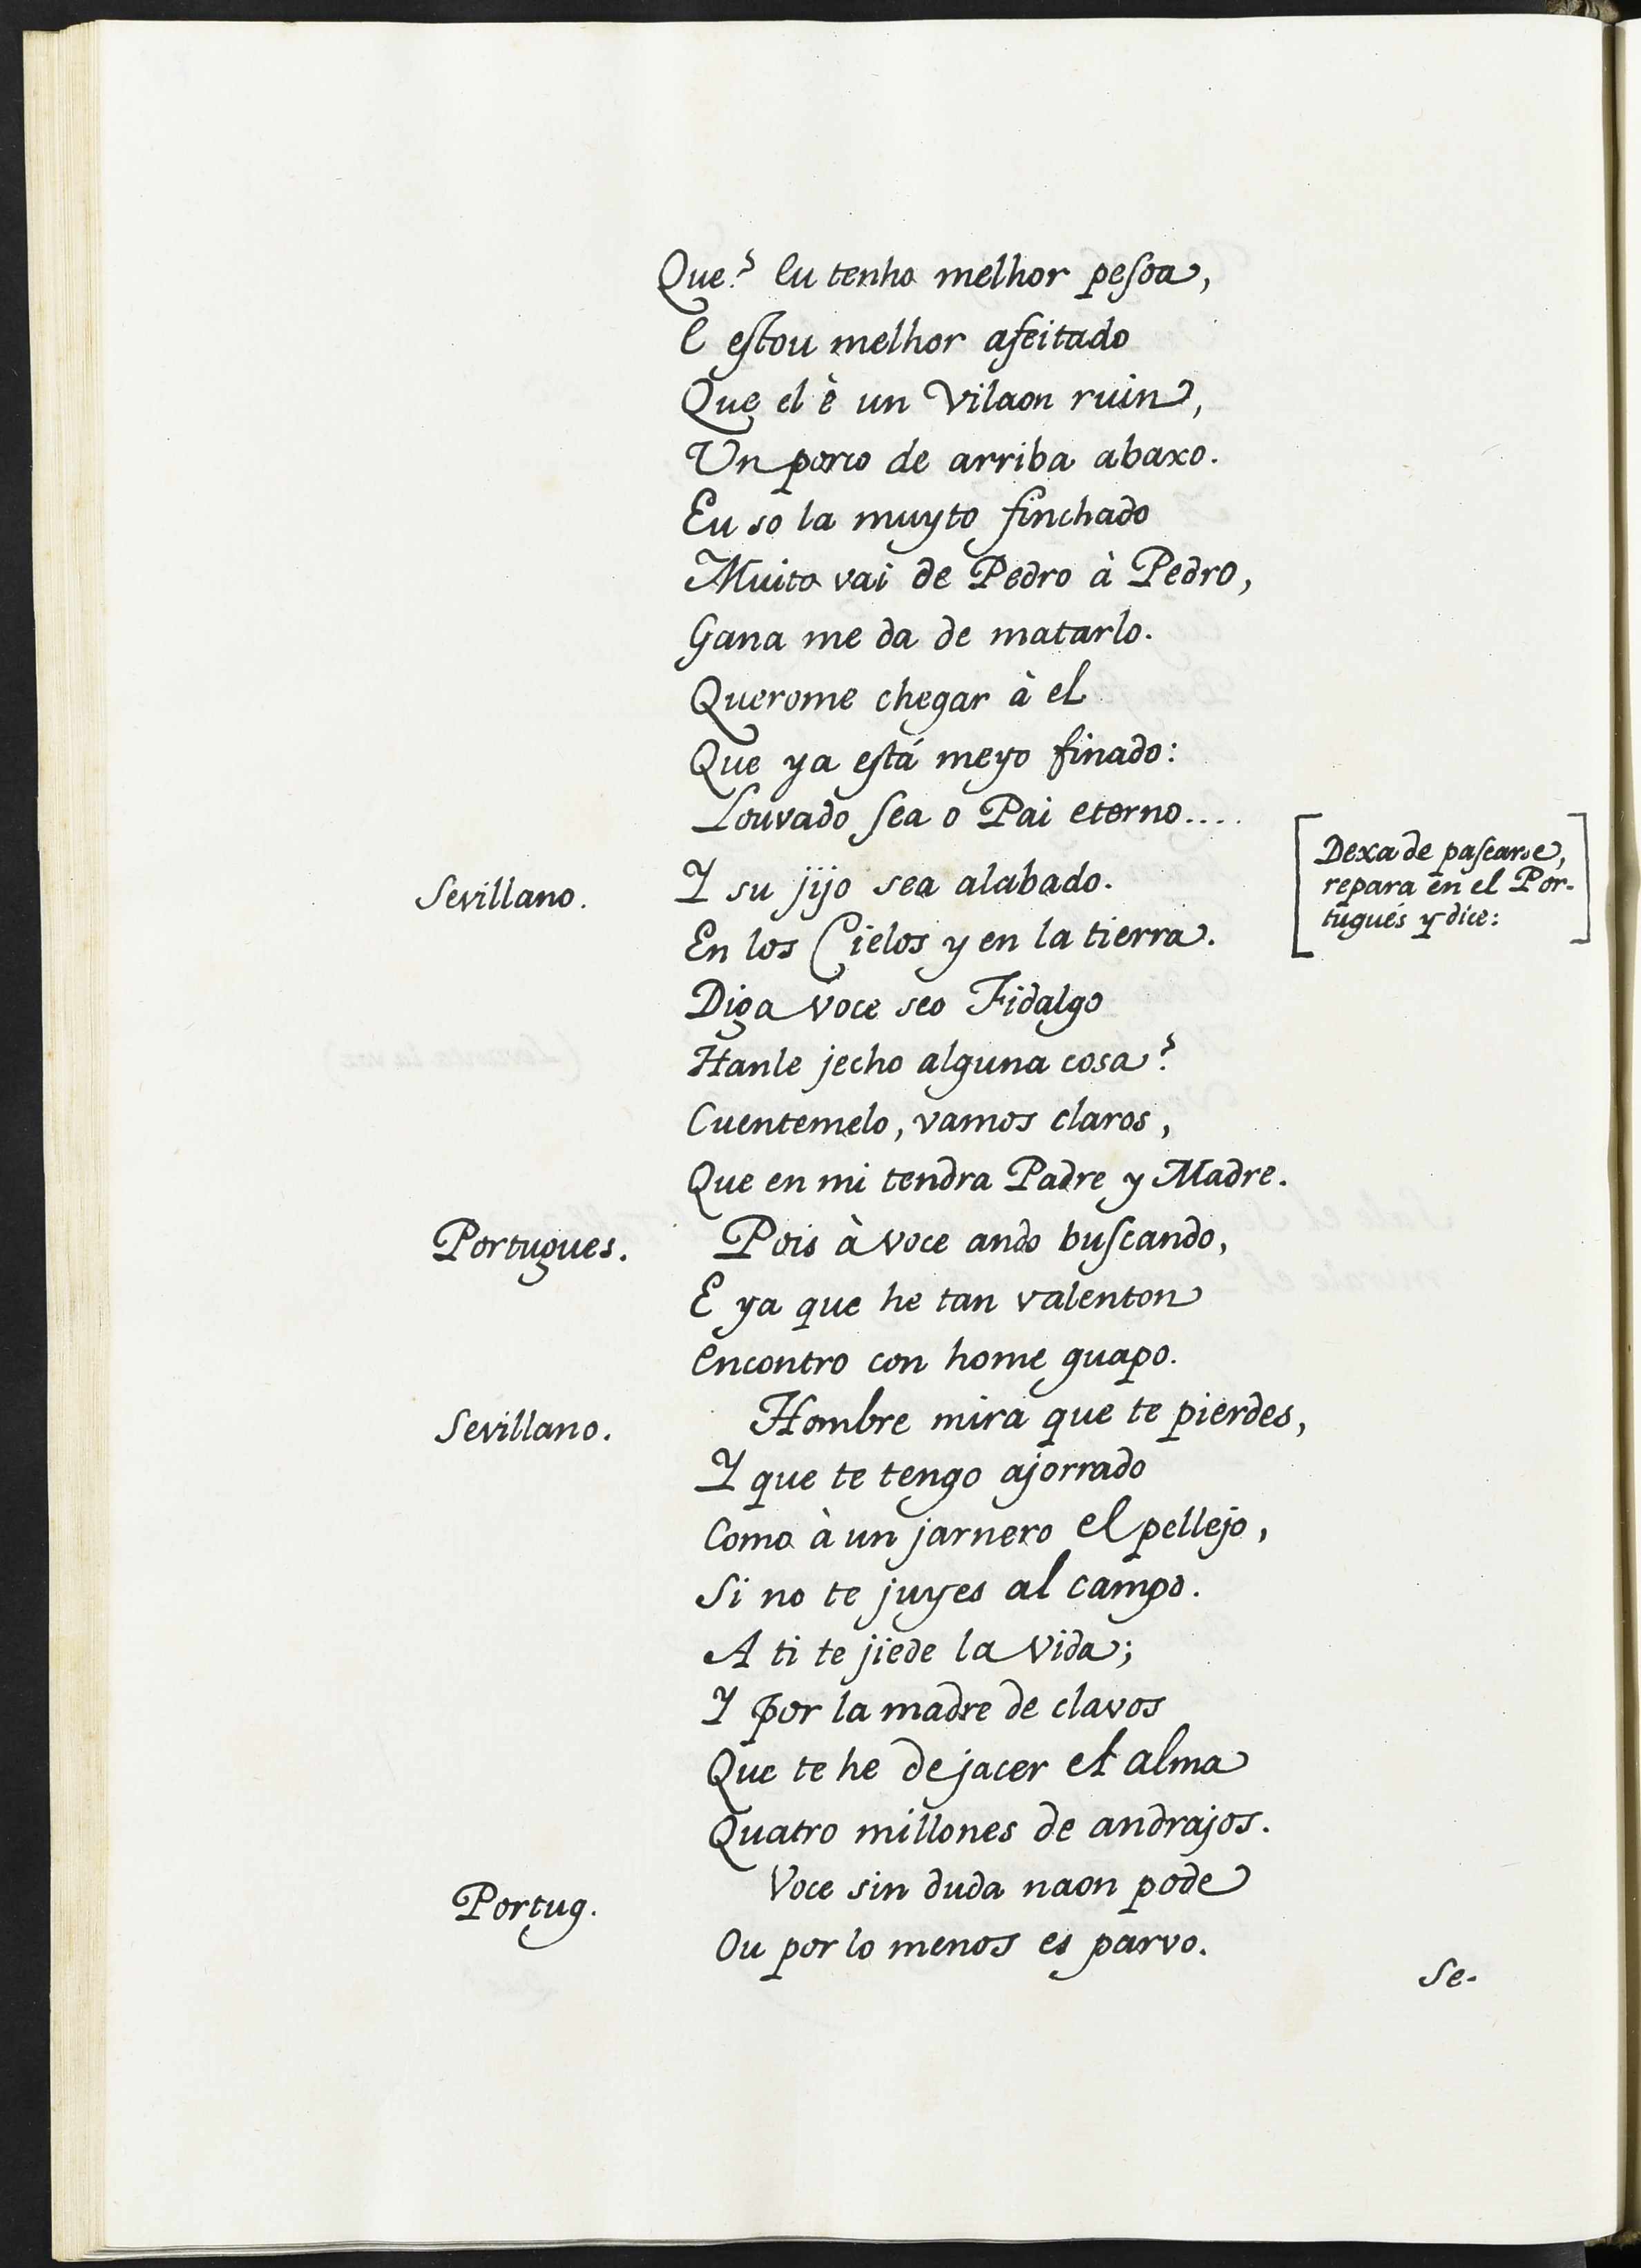 Que? Eu tenho melhor peſoa,
E eſtou melhor afeitado
Que el è un Vilaon ruin,
Un porco de arriba abaxo.
Eu so la muyto finchado
Muito vai de Pedro à Pedro,
Gana me da de matarlo.
Querome chegar à el
Que ya eſtá meyo finado:
Louvado ſea o Pai eterno....
Dexa de paſearse,
repara en el Por-
tugués y dice:
Sevillano. Y su jijo sea alabado.
En los Cielos y en la tierra.
Diga voce seo Fidalgo
Hanle jecho alguna cosa?
Cuentemelo, vamos claros,
Que en mi tendra Padre y Madre.
Portugues. Pois à voce ando buſcando,
E ya que he tan valenton
Encontro con home guapo.
Sevillano. Hombre mira que te pierdes,
Y que te tengo ajorrado
Como à un jarnero el pellejo,
Si no te juyes al campo.
A ti te jiede la vida;
Y por la madre de clavos
Que te he de jacer el alma
Quatro millones de andrajos.
Portug. Voce sin duda naon pode
Ou por lo menos es parvo.
Se-